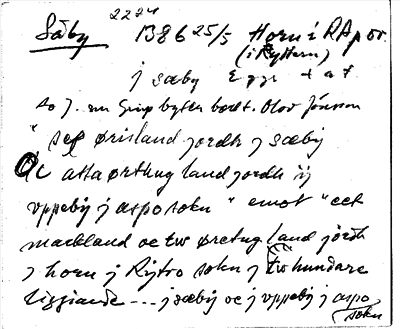 Säby 2224 1386 25/5 Horn i RAp or.
(i Ryttern)
j sæby
So J. un Grip byter bort. Olov Jónsson
" sex ørisland jordh j sæby
Oc atta ørtugland jordh ij
vppeby j aspo sokn " emot "eet
markland oc tw øretug land jördh
j horn j Rytro sokn j twhundare
liggiande --- j sæby oc j vppeby j aspo
sokn